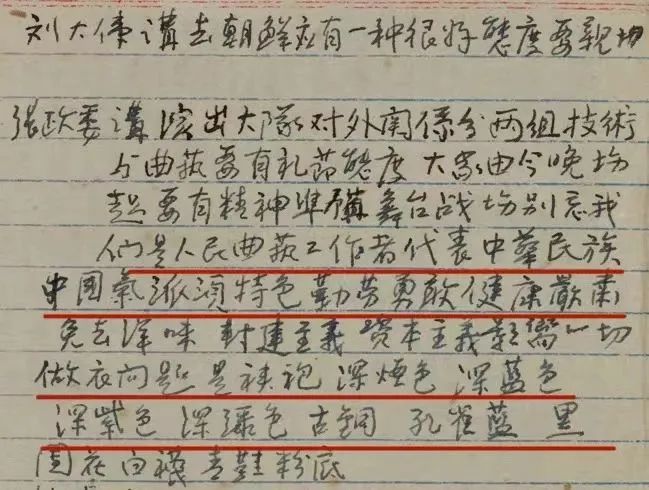 刘大使講去朝鮮应有一种很好態度要親切
张政委講演出大隊对外関係分两组技術
与曲芸要有礼節態度 大家由今晚场
起要有精神準備舞台战场别忘我
们是人民曲芸工作者代表中華民族
中国氣派須特色勤劳勇敢健康嚴肃
免去洋味 封建主義 資本主義影响一切
做衣问题是袂袍 深烟色 深蓝色
深紫色 深绿色 古铜 孔雀蓝 黑
團花白襪青鞋粉底